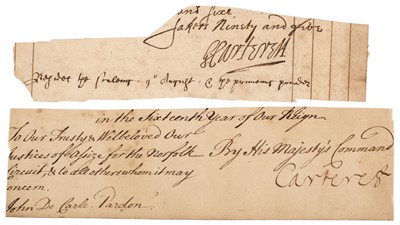 and sixe
taken Ninety and five
GCarteret
August
in the Sixteenth Year of Our Reign
To Our Trusty & Welbeloved Our
Justices of Assize for the Norfolk
Circuit, & to all others whom it may
Concern.
John De Carle. Pardon.
By His Majesty's Command
Carteret